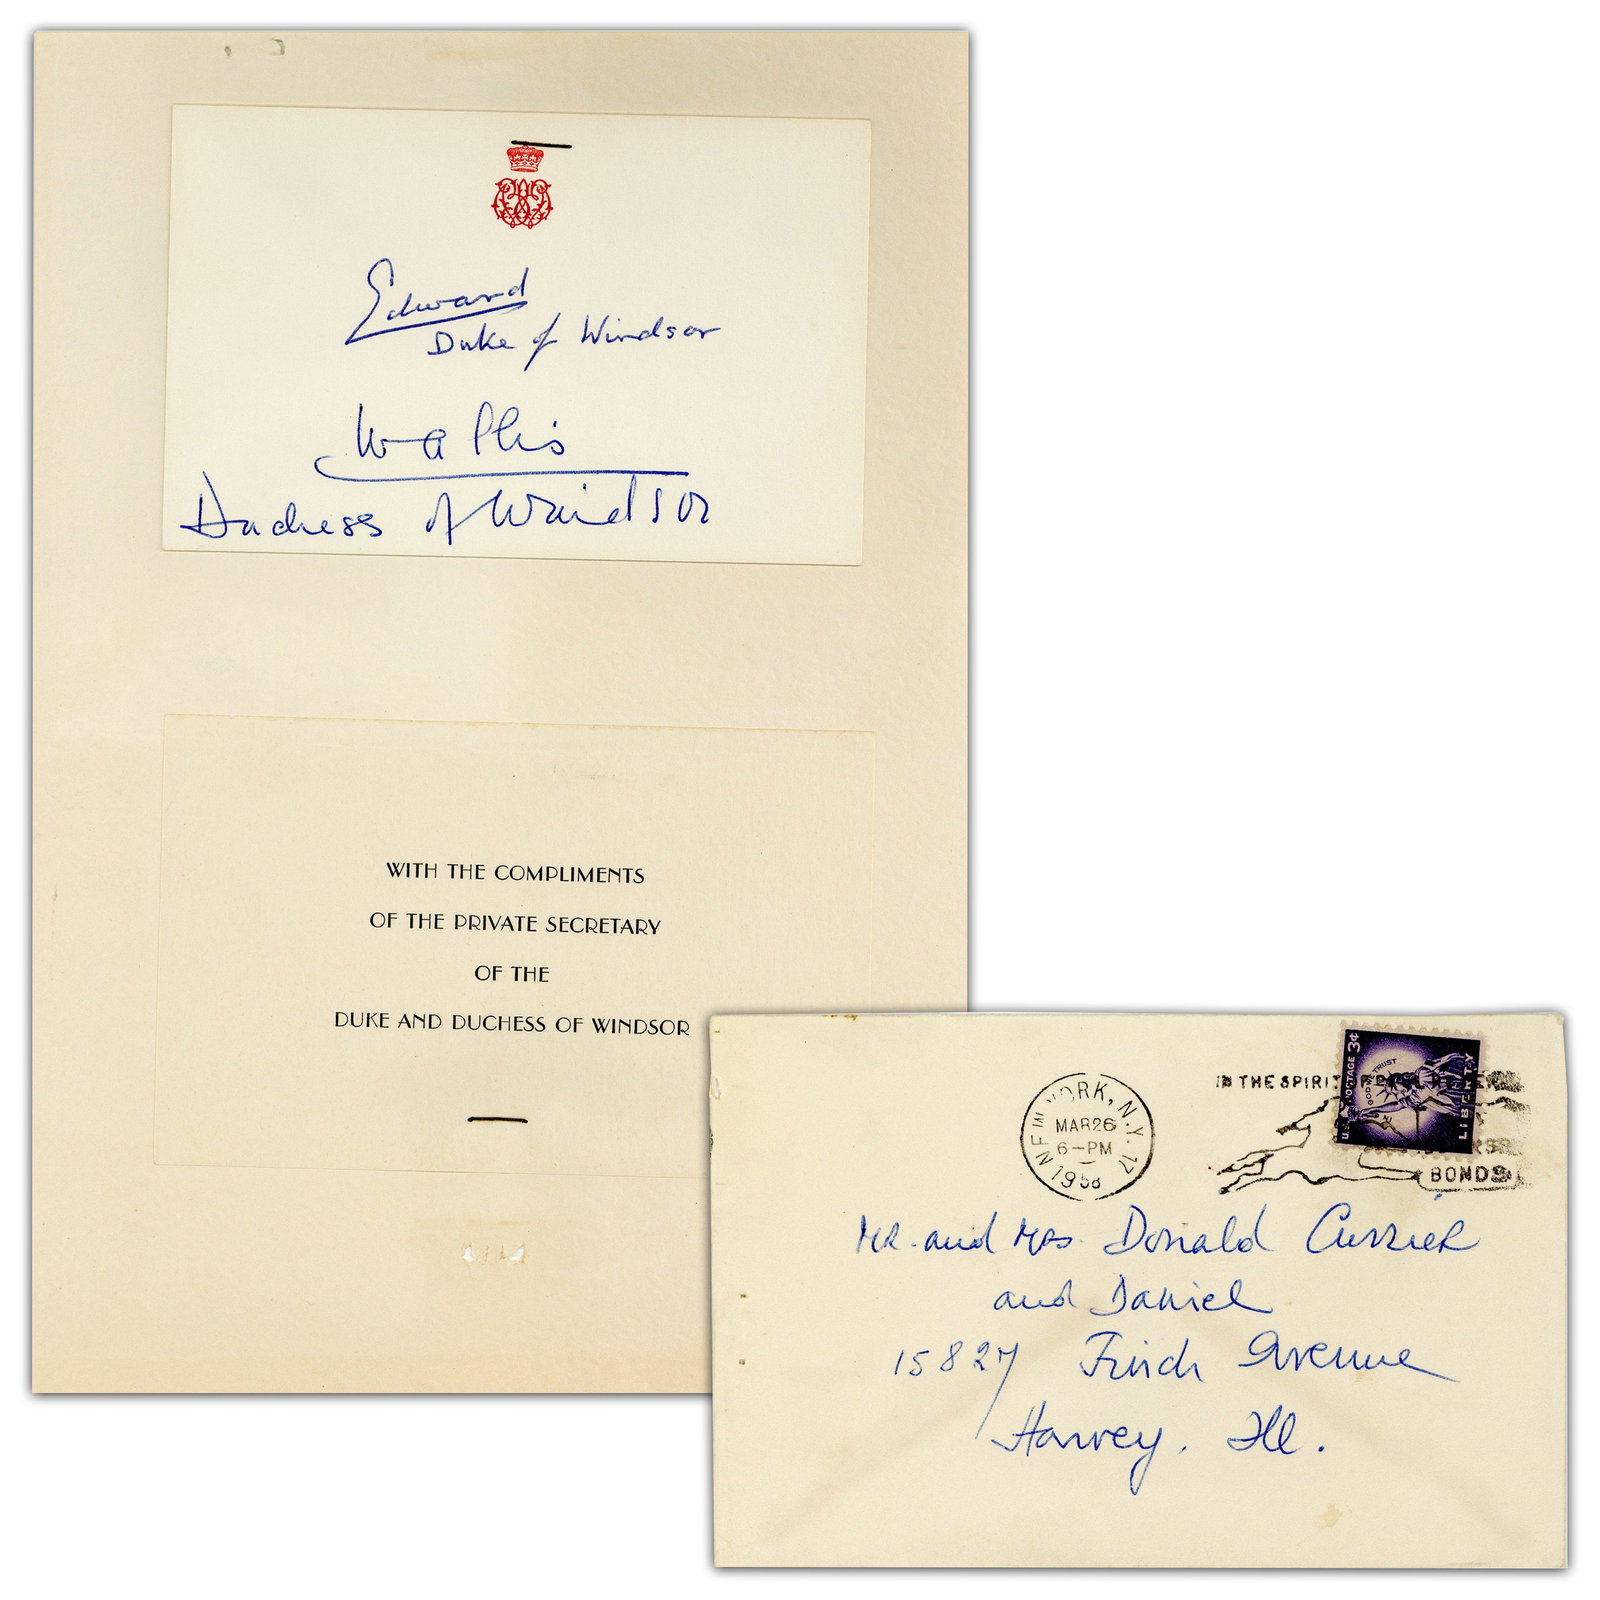 Edward
Duke of Windsor
Wallis
Duchess of Windsor
WITH THE COMPLIMENTS
OF THE PRIVATE SECRETARY
OF THE
DUKE AND DUCHESS OF WINDSOR
NEW YORK, N.Y. 17
MAR 26
6-PM
1958
IN THE SPIRIT
BONDS
U.S. POSTAGE 3¢
IN GOD WE TRUST
LIBERTY
Mr. and Mrs. Donald Currier
and Daniel
15827 Finch Avenue
Harvey. Ill.